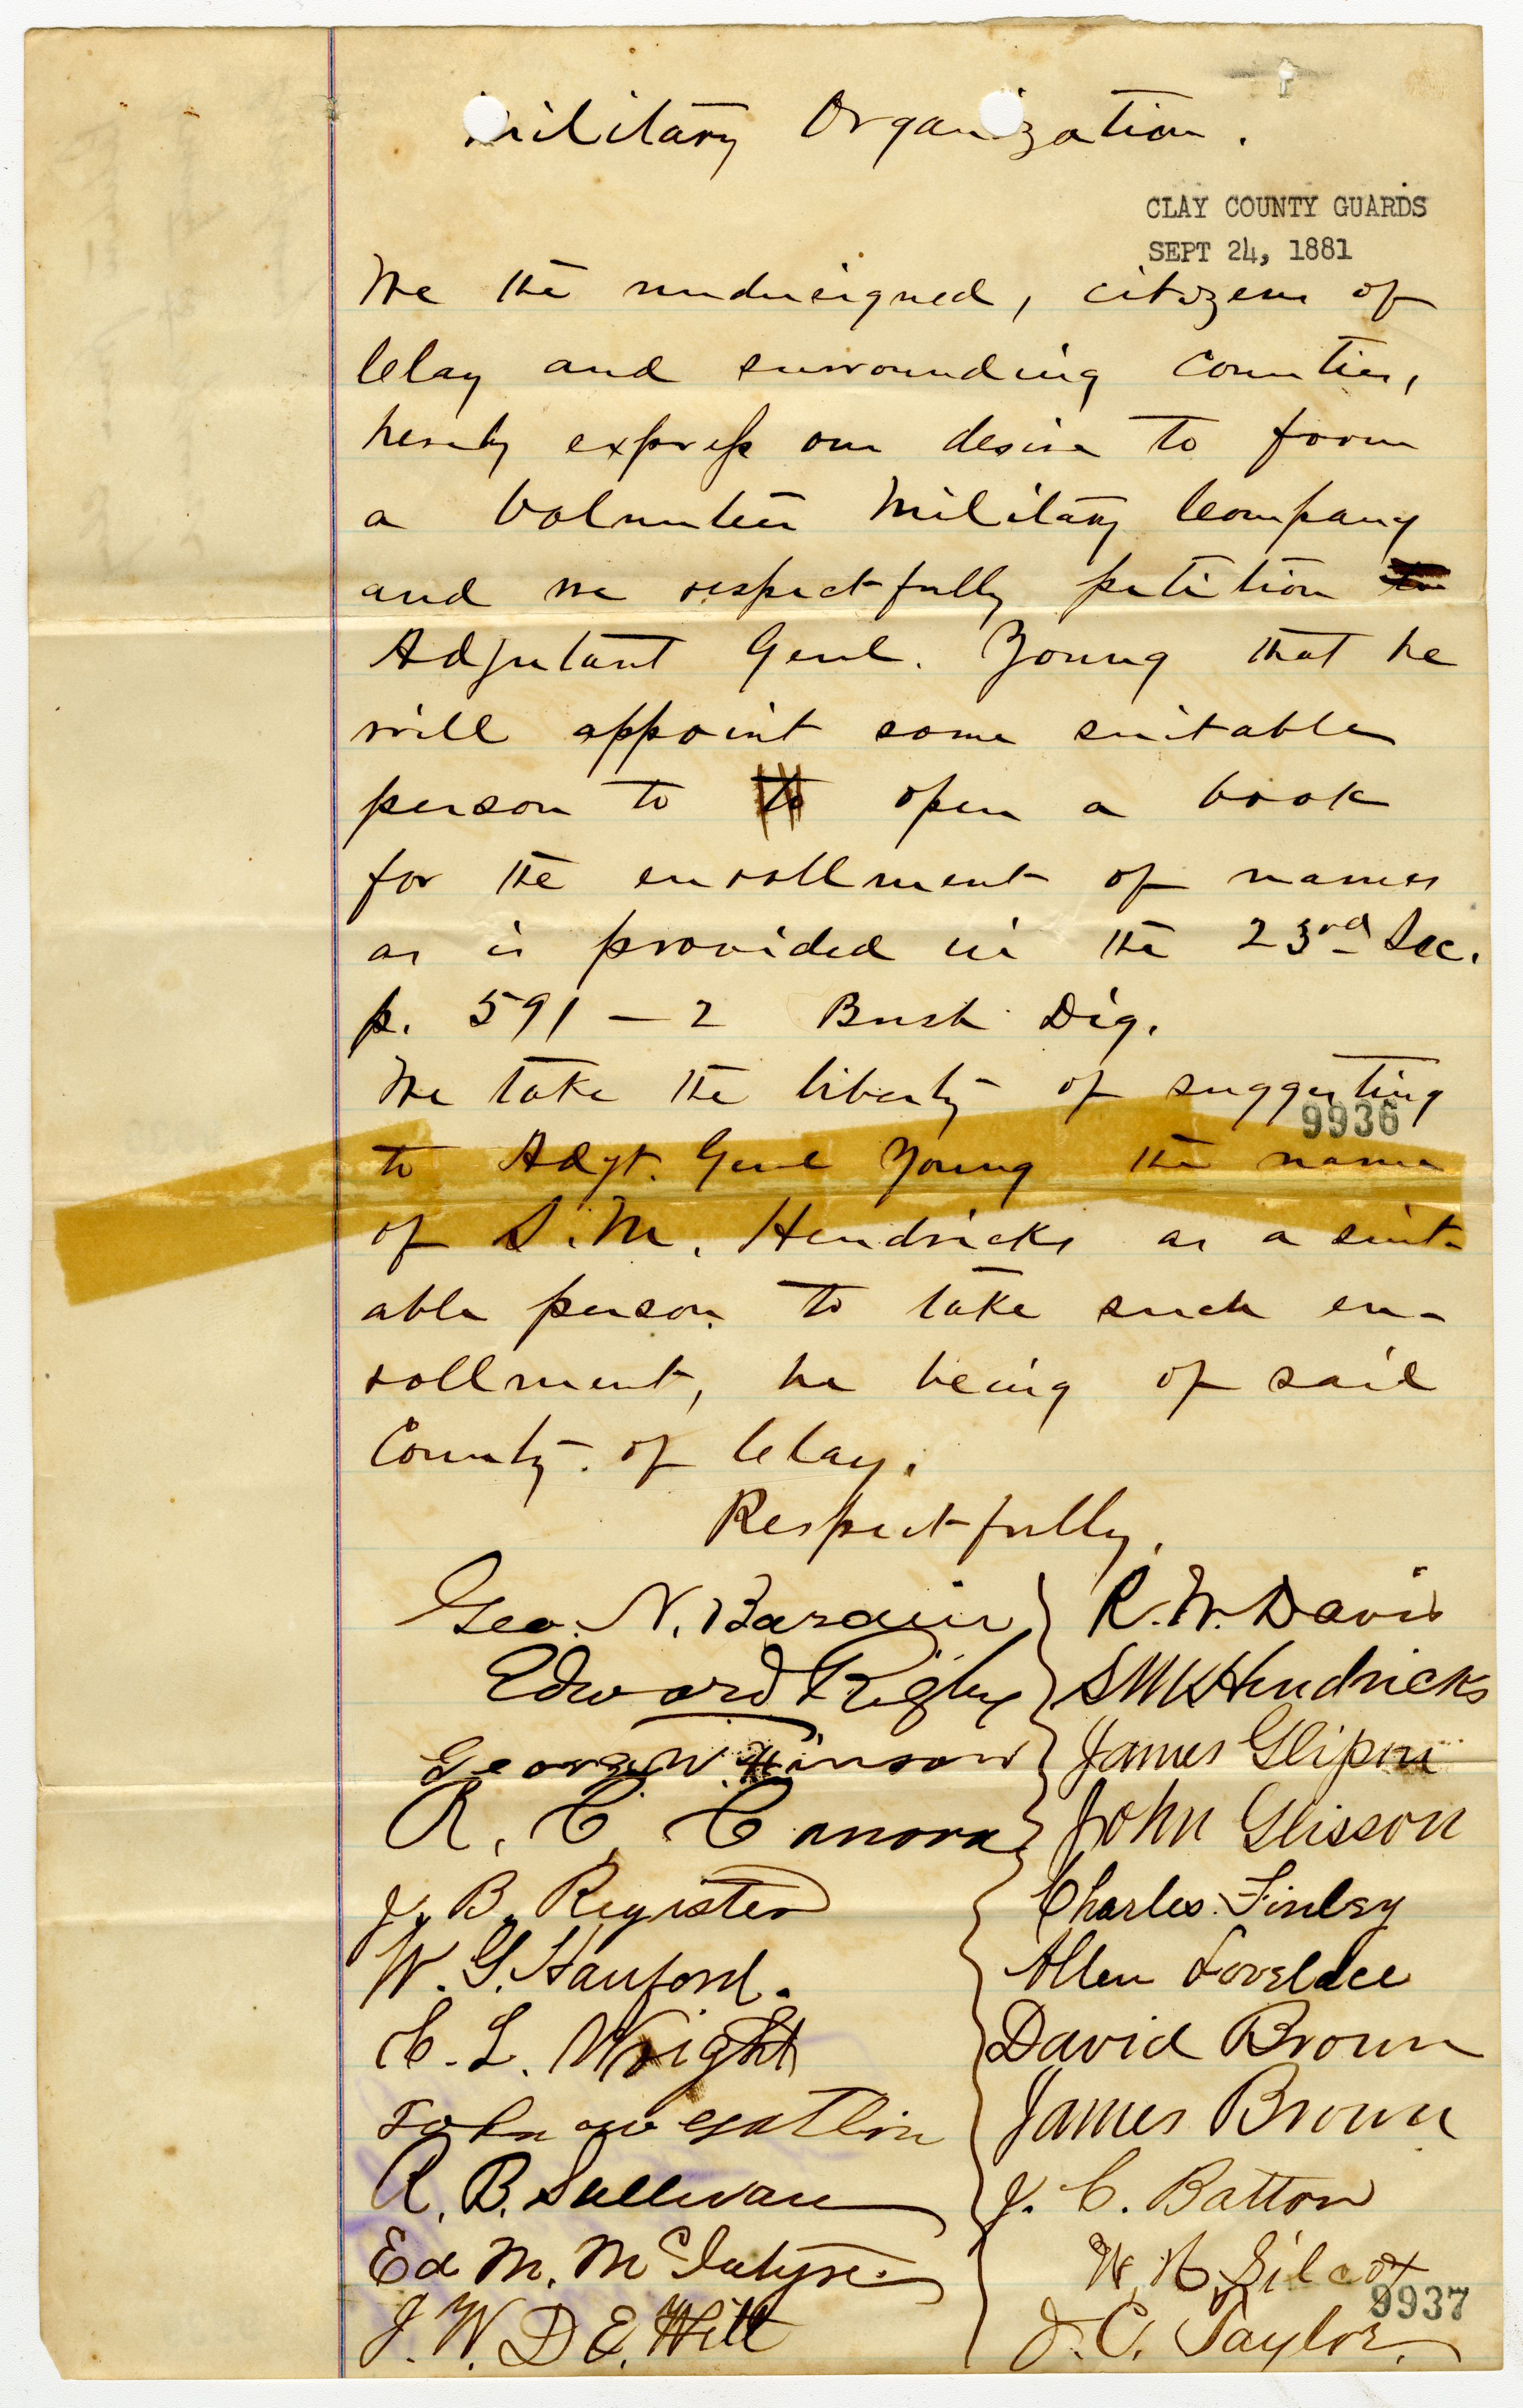 Military Organization.
CLAY COUNTY GUARDS
SEPT 24, 1881
We the undersigned, citizens of
Clay and surrounding Counties,
hereby express our desire to form
a Volunteer Military Company
and we respectfully petition
Adjutant Genl. Young that he
will appoint some suitable
person to to open a book
for the enrollment of names
as is provided in the 23rd Sec.
p. 591 — 2 Bush Dig.
We take the liberty of suggesting
9936
to Adgt. Genl Young the name
of S. M. Hendricks as a suit-
able person to take such en-
rollment, he being of said
County of Clay.
Respectfully,
Geo. N. Bardin R. W. Davis
Edward Rigby Hendricks
George W. Hinson James
R. C. Canova John Glisson
J. B. Register Charles Finlay
W. G. Hanford. Allen Lovelace
C. L. Wright David Brown
John W Gatlin James Brown
R. B. Sullivan J. C. Batton
Ed M. McIntyre. W. H. Silcox
9937
J. W. DE. Witt J. C. Taylor.